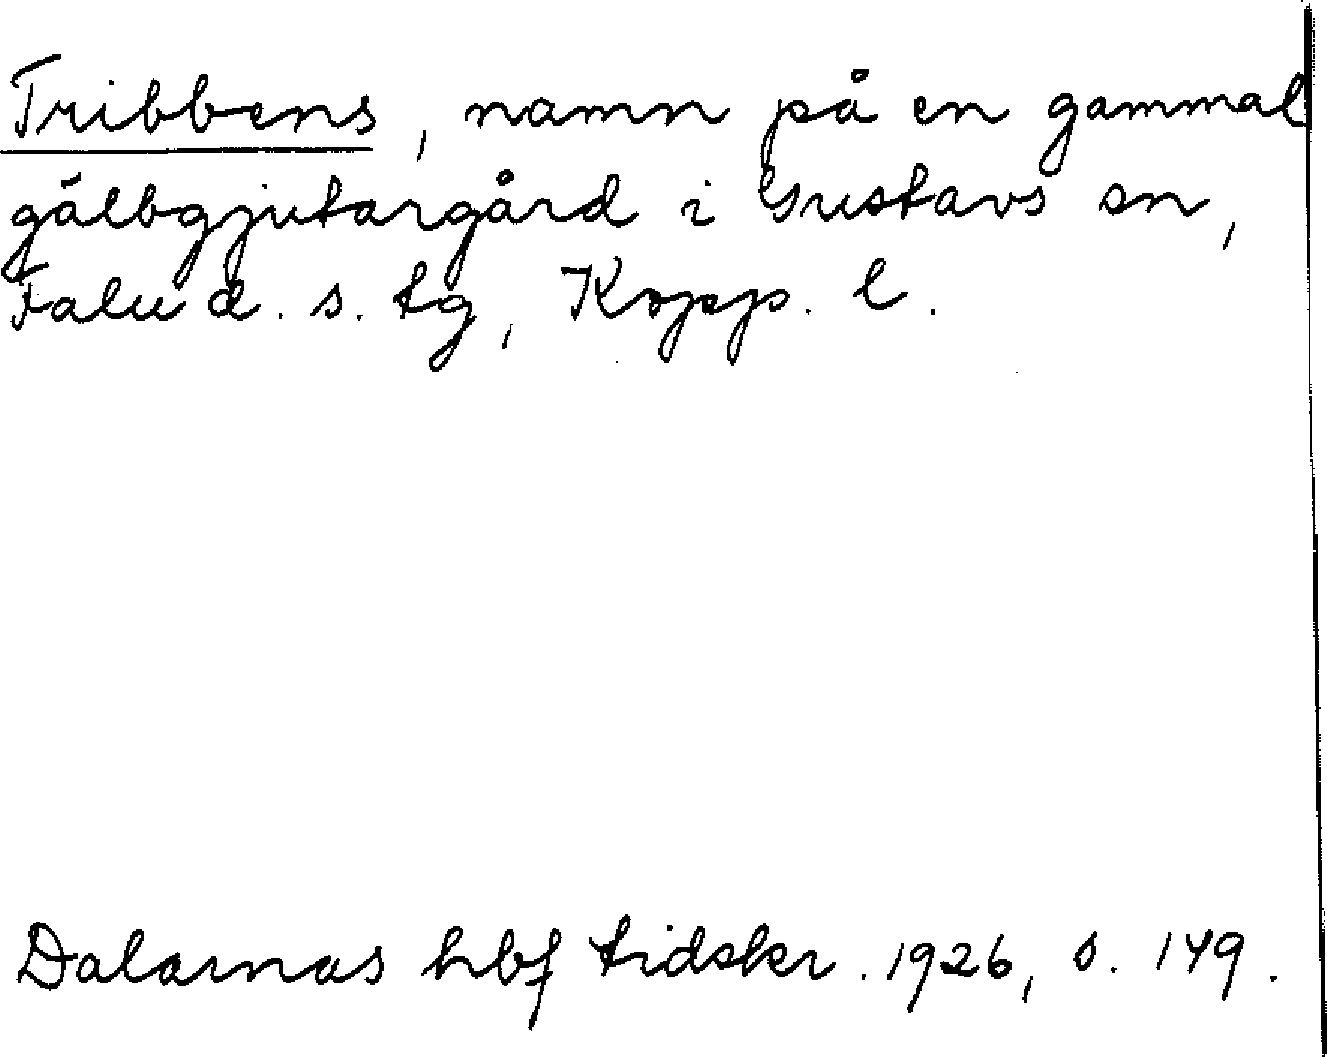 Tribbens, namn på en gammal
gälbgjutargård i Gustavs sn,
Falu d. s. tg, Kopp. l.
Dalarnas hbf tidskr. 1926, s. 149.